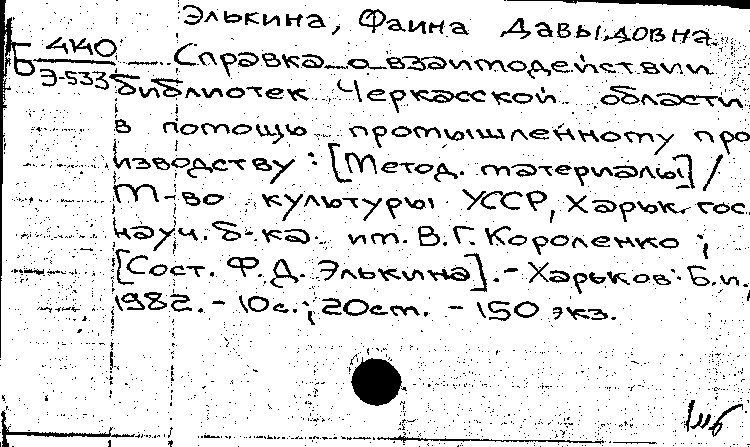 Элькина, Фаина Давыдовна
Б 4140
Э-533
Справка о взаимодействии
библиотек Черкасской области
в помощь промышленному про
изводству : [Метод. материалы] /
М-во культуры УССР, Харьк. гос.
науч. б-ка им. В.Г. Короленко ;
[Сост. Ф.Д. Элькина]. – Харьков : Б.и.,
1982. – 10 с. ; 20 см. – 150 экз.